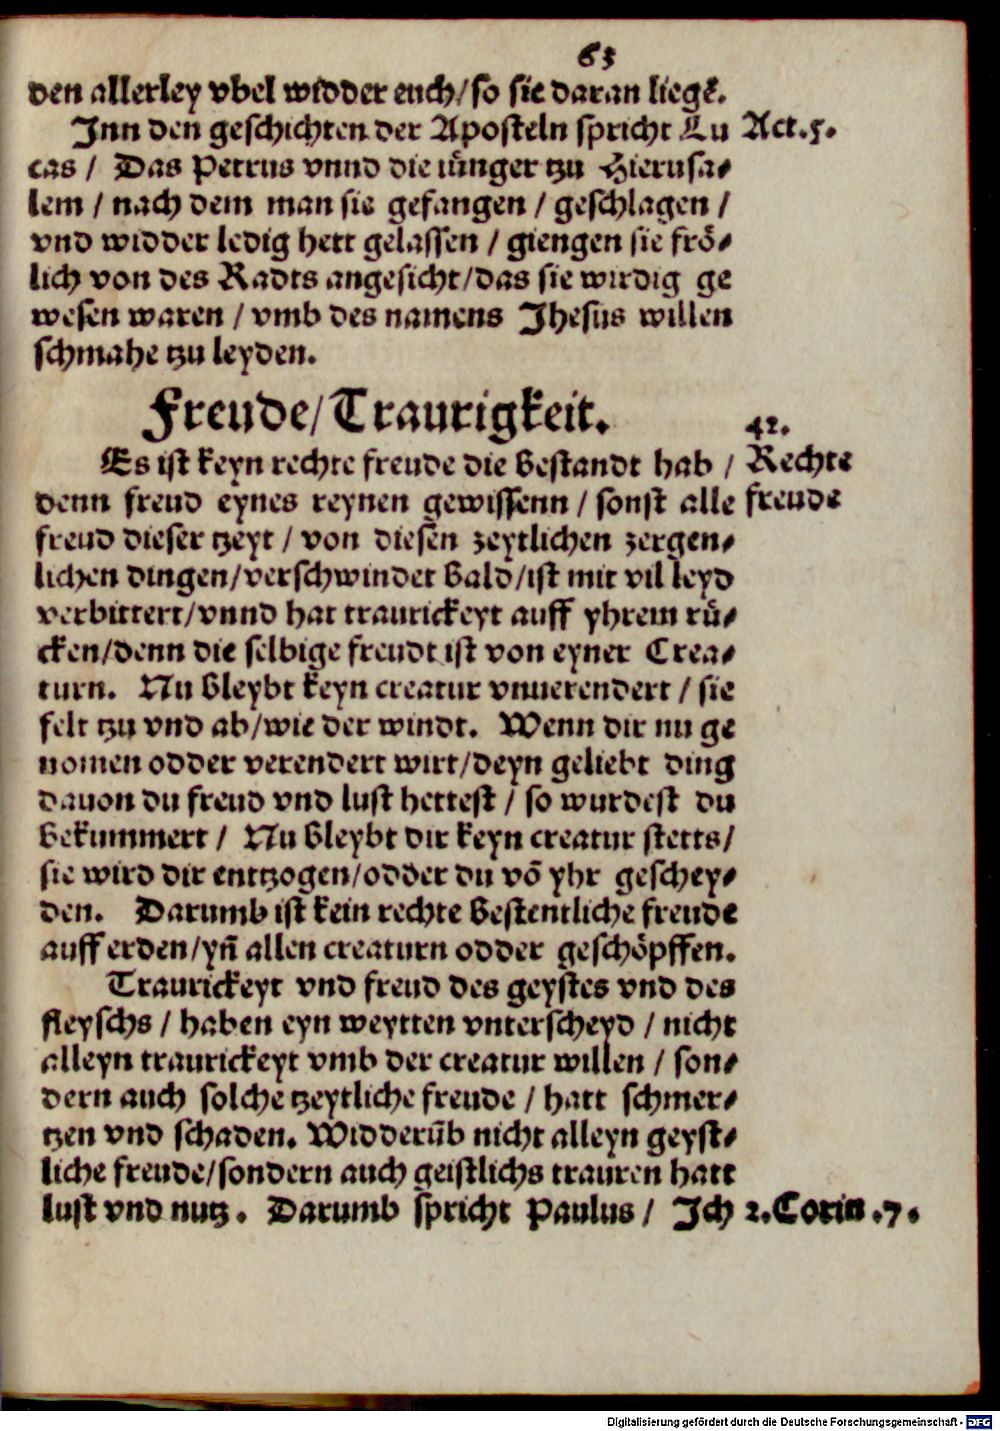 63
den allerley vbel widder euch/so sie daran liegē.
Inn den geschichten der Aposteln spricht Lu Act.5.
cas / Das Petrus vnnd die iůnger tzu Hierusa-
lem / nach dem man sie gefangen / geschlagen /
vnd widder ledig hett gelassen / giengen sie frö-
lich von des Radts angesicht/das sie wirdig ge
wesen waren / vmb des namens Jhesus willen
schmahe tzu leyden.
Freude/Traurigkeit.
42.
Es ist keyn rechte freude die bestandt hab / Rechte
denn freud eynes reynen gewissenn / sonst alle freude
freud dieser tzeyt / von diesen zeytlichen zergen-
lichen dingen/verschwindet bald/ist mit vil leyd
verbittert/vnnd hat traurickeyt auff yhrem rů-
cken/denn die selbige freudt ist von eyner Crea-
turn. Nu bleybt keyn creatur vnuerendert / sie
felt tzu vnd ab/wie der windt. Wenn dir nu ge
nomen odder verendert wirt/deyn geliebt ding
dauon du freud vnd lust hettest / so wurdest du
bekummert / Nu bleybt dir keyn creatur stetts/
sie wird dir entzogen/odder du vō yhr geschey-
den. Darumb ist kein rechte bestentliche freude
auff erden/yn̄ allen creaturn odder geschöpffen.
Traurickeyt vnd freud des geystes vnd des
fleyschs / haben eyn weytten vnterscheyd / nicht
alleyn traurickeyt vmb der creatur willen / son-
dern auch solche tzeytliche freude / hatt schmer-
tzen vnd schaden. Widderūb nicht alleyn geyst-
liche freude/sondern auch geistlichs trauren hatt
lust vnd nutz. Darumb spricht Paulus / Ich 2.Corin.7.
Digitalisierung gefördert durch die Deutsche Forschungsgemeinschaft - DFG